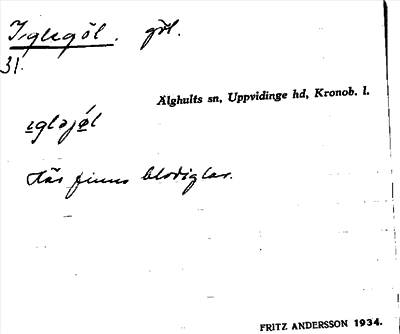 Iglegöl. göl.
31.
Älghults sn, Uppvidinge hd, Kronob. l.
ıgləjøl
Här finns blodiglar.
FRITZ ANDERSSON 1934.